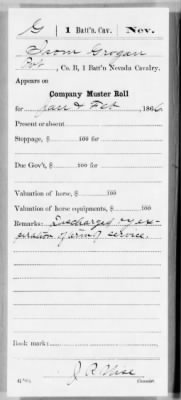 G | 1 Batt'n. Cav. | Nev.
Grogan
Pvt, Co. B, 1 Batt'n Nevada Cavalry.
Appears on
Company Muster Roll
for Jan & Feb, 1866
Present or absent
Stoppage, $ 100 for
Due Gov't, $ 100 for
Valuation of horse, $ 100
Valuation of horse equipments, $ 100
Remarks: Discharged by ex-
piration of term of service.
Book mark:
J. R.
Copyist.